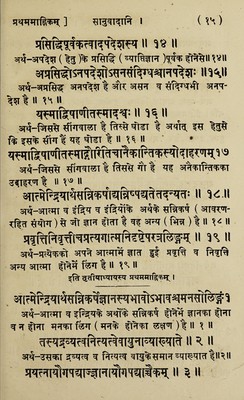 प्रथममाह्निकम् ] सानुवादानि । (१५)
प्रसिद्धिपूर्वकत्वादपदेशस्य ॥ १४ ॥
अर्थ-अपदेश (हेतु) के प्रसिद्धि ( व्याप्तिज्ञान ) पूर्वक होनेसे॥१४॥
अप्रसिद्धोऽनपदेशोऽसन्संदिग्धश्चानपदेशः ॥१५॥
अर्थ-अप्रसिद्ध अनपदेश है और असन् व संदिग्धभी अनप-
देश है ॥ १५ ॥
यस्माद्विषाणीतस्मादश्वः ॥ १६ ॥
अर्थ-जिससे सींगवाला है तिससे घोडा है अर्थात् इस हेतुसे
कि इसके सींग हैं यह घोडा है ॥ १६ ॥
यस्माद्विषाणीतस्माद्गौरितिचानैकान्तिकस्योदाहरणम्॥१७
अर्थ-जिससे सींगवाला है तिससे गौ है यह अनेकान्तिकका
उदाहरण है ॥ १७ ॥
आत्मेन्द्रियार्थसन्निकर्षाद्यन्निष्पद्यतेतदन्यत् ॥ १८ ॥
अर्थ-आत्मा व इंद्रिय व इन्द्रियोंके अर्थके सन्निकर्ष (आवरण-
रहित संयोग) से जो ज्ञान होता है वह अन्य (भिन्न) है ॥ १८ ॥
प्रवृत्तिनिवृत्तीचप्रत्यगात्मनिदृष्टेपरत्रलिङ्गम् ॥ १९ ॥
अर्थ-प्रत्येकको अपने आत्मामें ज्ञात हुई प्रवृत्ति व निवृत्ति
अन्य आत्मा होनेमें लिंग है ॥ १९ ॥
इति तृतीयाध्यायस्य प्रथममाह्निकम् ।
आत्मेन्द्रियार्थसन्निकर्षेज्ञानस्यभावोऽभावश्चमनसोलिङ्गम्॥१
अर्थ-आत्मा व इन्द्रियके अर्थोंके सन्निकर्ष होनेमें ज्ञानका होना
व न होना मनका लिंग (मनके होनेका लक्षण) है ॥ १ ॥
तस्यद्रव्यत्वनित्यत्वेवायुनाव्याख्याते ॥ २ ॥
अर्थ-उसका द्रव्यत्व व नित्यत्व वायुकेसमान व्याख्यात है॥२॥
प्रयत्नायौगपद्याज्ज्ञानायौगपद्याच्चैकम् ॥ ३ ॥